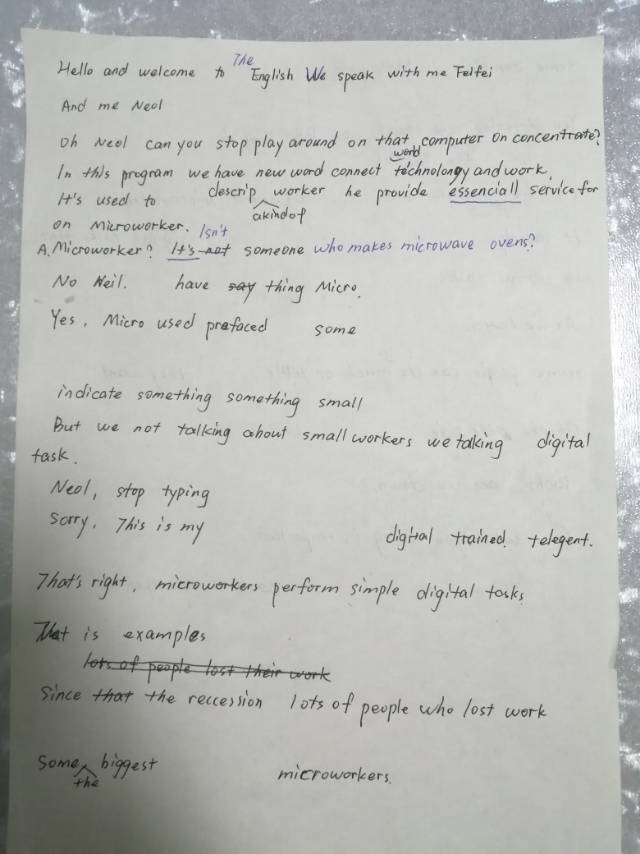 Hello and welcome to The English We speak with me Feifei
And me Neol
Oh Neol can you stop play around on that computer on concentrate?
In this program we have new word connect word technolongy and work.
It's used to descrip a kind of worker he provide essenciall service for
on Microworker.
A. Microworker? Isn't It's not someone who makes microwave ovens?
No Neil. have say thing Micro.
Yes, Micro used prefaced some
indicate something something small
But we not talking about small workers we talking digital
task.
Neol, stop typing
Sorry. This is my digital trained. telegent.
That's right, microworkers perform simple digital tasks
That is examples
lots of people lost their work
Since that the reccession lots of people who lost work
Some the biggest microworkers.